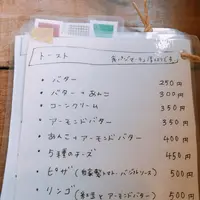 トースト
・バター 250円
・バター+あんこ 300円
・コーンクリーム 350円
・アーモンドバター 350円
・あんこ+アーモンドバター 400円
・5種のチーズ 450円
・ピザ 500円
・リンゴ アーモンドバター 500円